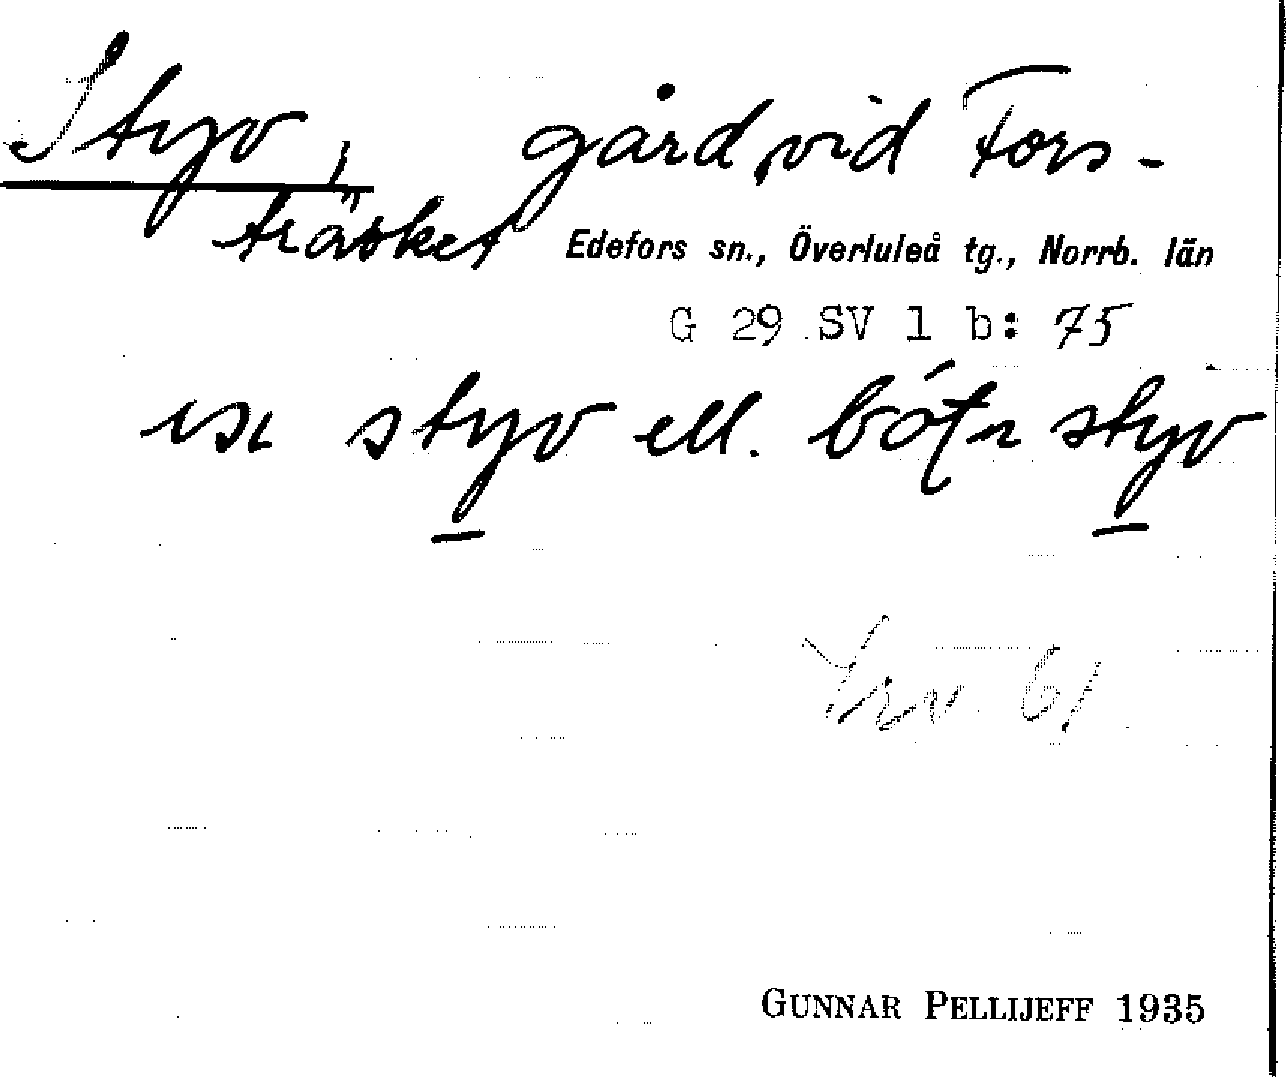 Styv, gård vid Fors-
träsket Edefors sn., Överluleå tg., Norrb. län
G 29 SV 1 b: 75
styv ell. styv
61
GUNNAR PELLIJEFF 1935